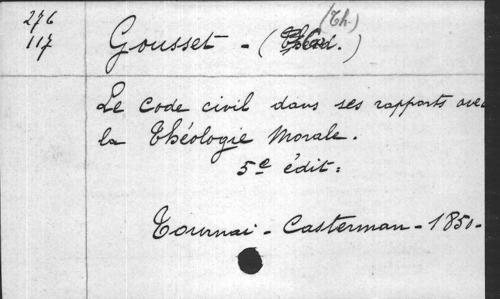 276
117
(Th.)
Gousset - ( .)
Le Code civil dans ses rapports avec
la Théologie Morale.
5e édit:
Tournai - Casterman - 1850-